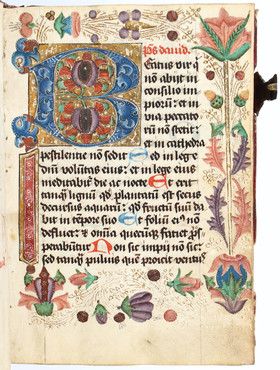 p̄s dauid.
Beatus vir q̄
nō abijt in
consilio im
piorū: et in
via peccato
rū nō stetit:
et in cathedra
pestilentie nō sedit Sed in lege
dn̄i volūtas eius: et in lege eius
meditabit᷑ die ac nocte Et erit
tanq̄ lignū qd̄ plantatū est secus
decursus aquarū: qd̄ fructū suū da
bit in tēpore suo Et foliū eiꝰ nō
defluet: ⁊ om̄a quecūq̄ faciet, ꝓs
perabūtur Non sic impij nō sic:
sed tanq̄ puluis quē proicit ventꝰ